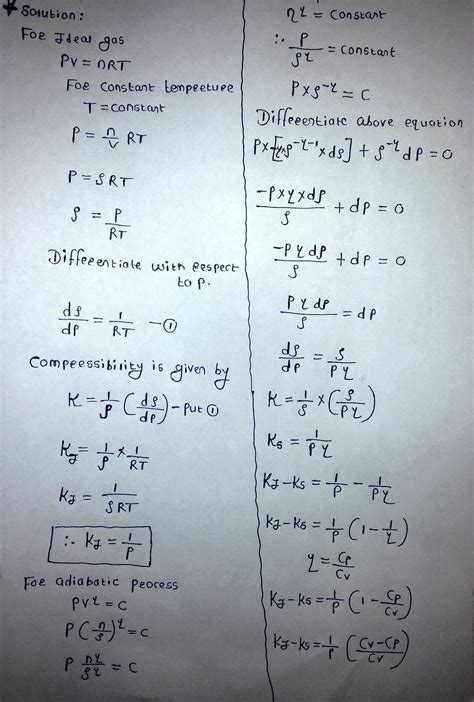 * Solution:
Foe Ideal gas
PV = nRT
Foe Constant tempreture
T = constant
P = n/V RT
P = ρRT
ρ = P/RT
Differentiate with respect
to P.
dρ/dP = 1/RT – ①
Compressibility is given by
K = 1/ρ (dρ/dP) – Put ①
K_T = 1/ρ × 1/RT
K_T = 1/ρRT
∴ K_T = 1/P
Foe adiabatic process
PV^γ = C
P(n/ρ)^γ = C
P n^γ/ρ^γ = C
n^γ = Constant
∴ P/ρ^γ = Constant
P × ρ^-γ = C
Differentiate above equation
P×[-γρ^-γ-1 × dρ] + ρ^-γ dP = 0
-P×γ×dρ/ρ + dP = 0
-Pγdρ/ρ + dP = 0
Pγdρ/ρ = dP
dρ/dP = ρ/Pγ
K = 1/ρ × (ρ/Pγ)
Ks = 1/Pγ
K_T - Ks = 1/P - 1/Pγ
K_T - Ks = 1/P (1 - 1/γ)
γ = Cp/Cv
K_T - Ks = 1/P (1 - Cp/Cv)
K_T - Ks = 1/P (Cv-Cp/Cv)